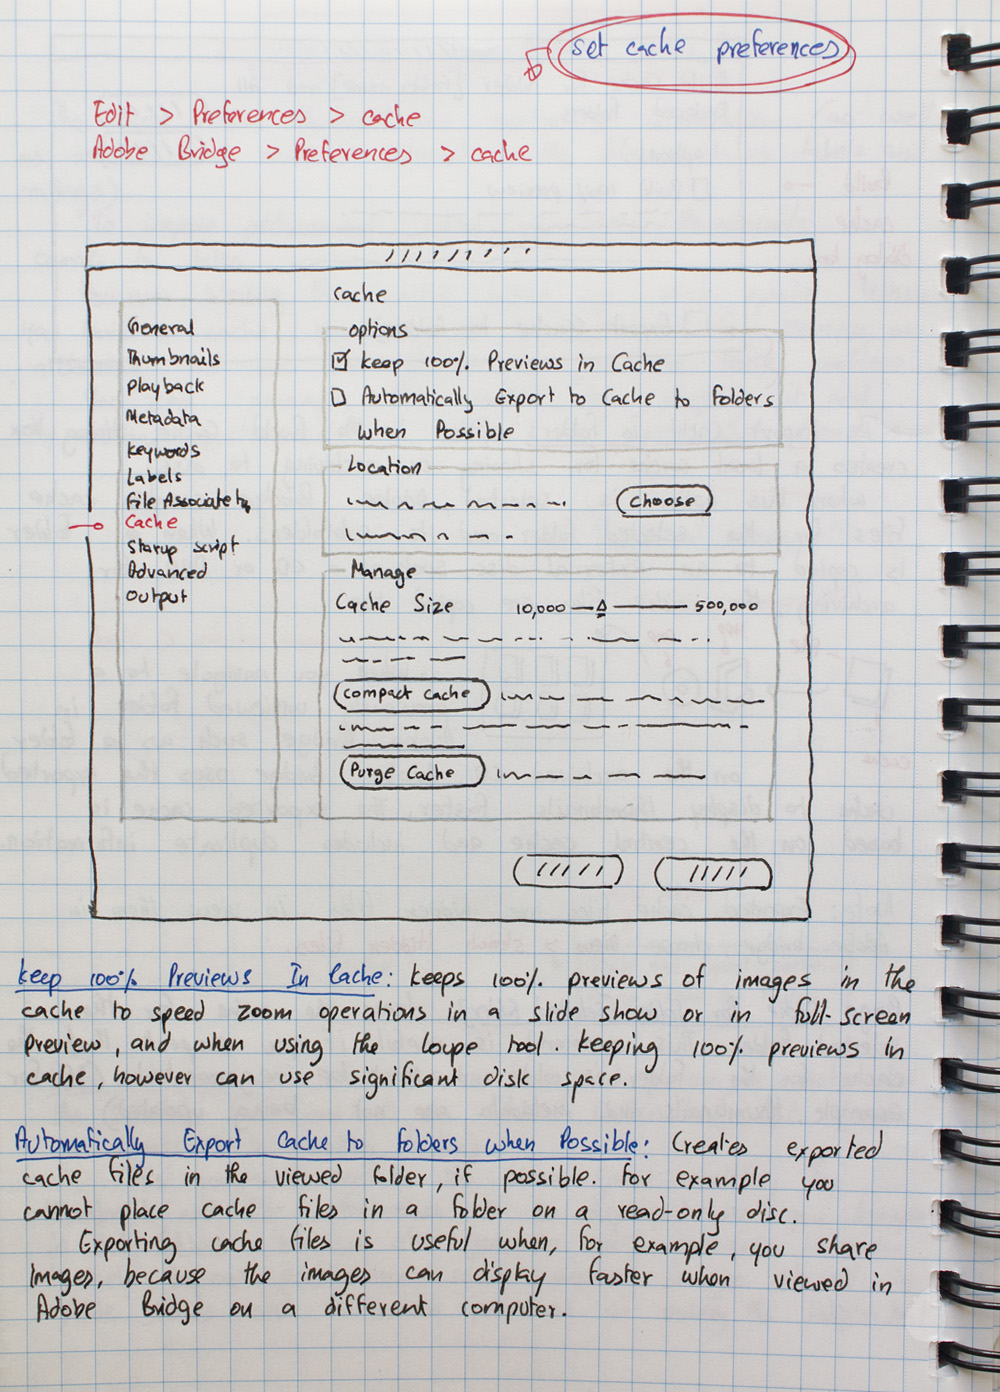 set cache preferences
Edit > Preferences > cache
Adobe Bridge > Preferences > cache
Cache
General
Thumbnails
Playback
Metadata
Keywords
Labels
File Associate
Cache
Starup script
Advanced
Output
options
Keep 100% Previews in Cache
Automatically Export to Cache to Folders
when Possible
Location
Choose
Manage
Cache Size 10,000 500,000
Compact Cache
Purge Cache
Keep 100% Previews In Cache: Keeps 100% previews of images in the
cache to speed zoom operations in a slide show or in full-screen
preview, and when using the loupe tool. Keeping 100% previews in
cache, however can use significant disk space.
Automatically Export Cache to Folders when Possible: Creates exported
cache files in the viewed folder, if possible. For example you
cannot place cache files in a folder on a read-only disc.
Exporting cache files is useful when, for example, you share
Images, because the images can display faster when viewed in
Adobe Bridge on a different computer.